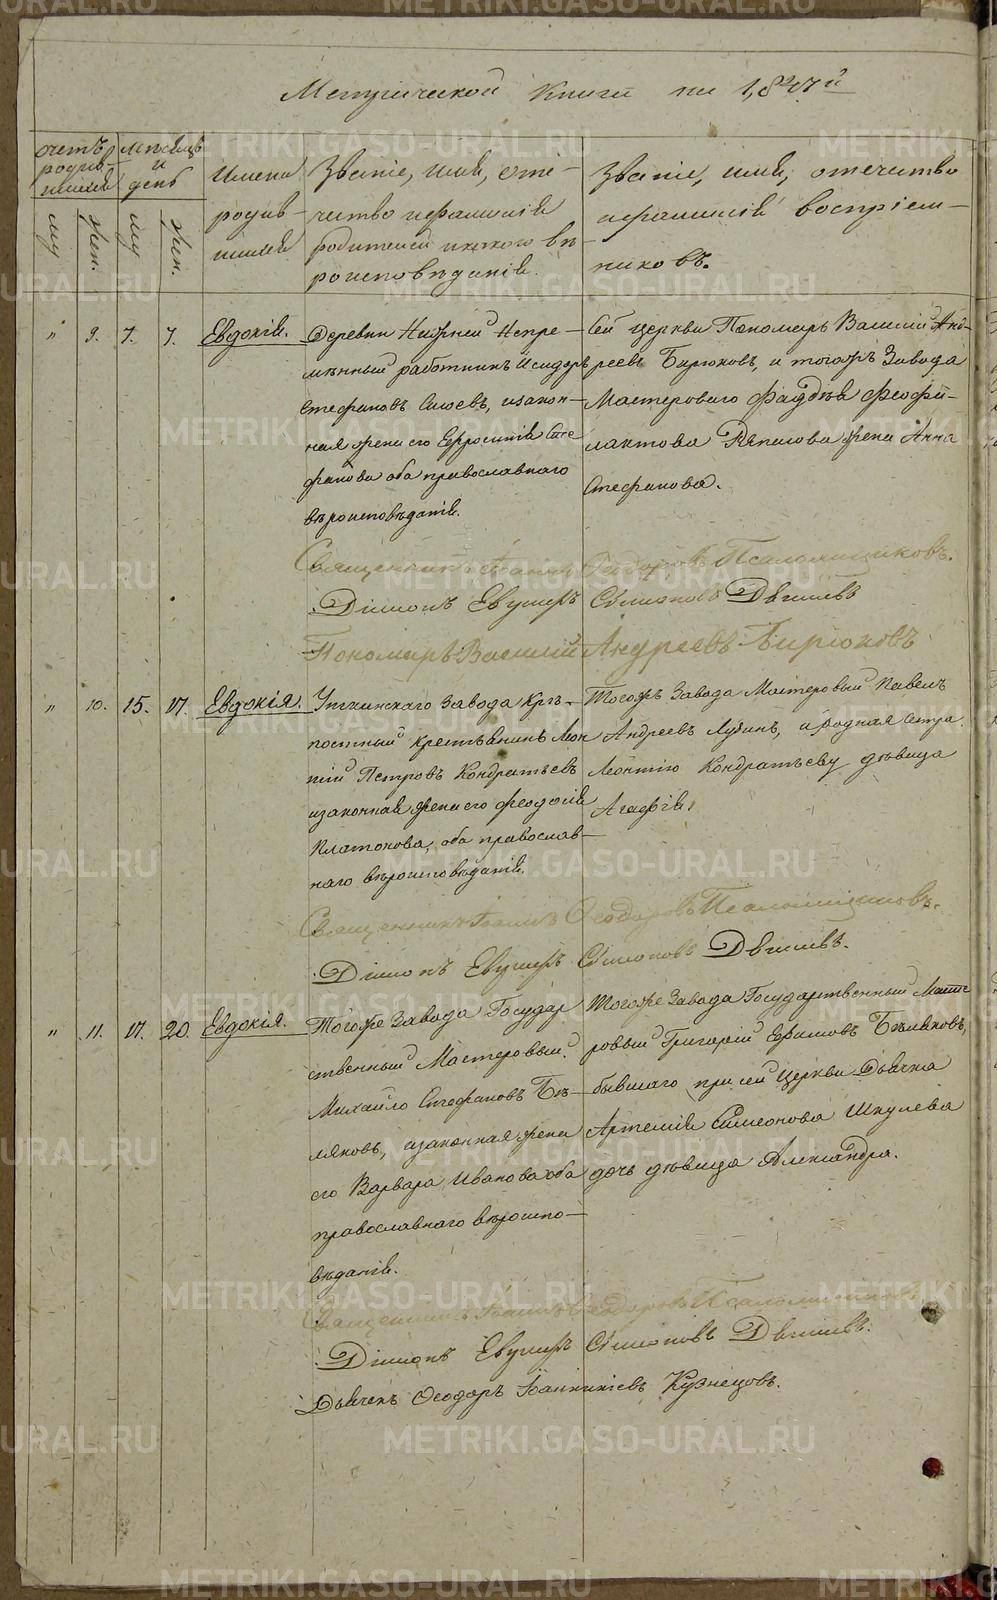 Метрической книги на 1,847й
счетъ родив-шихся
му. жен.
мѣсяцъ и день
му. жен.
Имена родив-шихся
Званіе, имя, оте-
чество и фамилія
родителей и какого вѣ-
роисповѣданія.
Званіе, имя, отечество
и фамилія воспріем-
никовъ.
" 9. 7. 7. Евдокія.
Деревни Нижней Непре-
мѣнный работникъ Исидоръ
Стефановъ Сысоевъ, и закон-
ная жена его Ефросинія Сте
фанова оба православнаго
вѣроисповѣданія.
Сей церкви Пономарь Василий Анд-
реевъ Бирюковъ, и тогожъ Завода
Мастероваго Фаддѣя Феофи-
лактова жена Анна
Стефанова.
Священникъ Іоаннъ Ѳеодоровъ Псаломщиковъ.
Діаконъ Евѳимъ Симіоновъ
Пономарь Василий Андреевъ Бирюковъ
" 10. 15. 17. Евдокія.
Уткинскаго Завода крѣ-
постный крестьянинъ Леон
тій Петровъ Кондратьевъ
и законная жена его Феодосія
Платонова, оба православ-
наго вѣроисповѣданія.
Тогожъ Завода Мастеровый Павелъ
Андреевъ и родная сестра
Леонтію Кондратьеву дѣвица
Агафія.
Священникъ Іоаннъ Ѳеодоровъ Псаломщиковъ.
Діаконъ Евѳимъ Симіоновъ
" 11. 17. 20. Евдокія.
Тогоже Завода Государ
ственный Мастеровый
Михайло Стефановъ Бѣ-
ляковъ, и законная жена
его Варвара Иванова оба
православнаго вѣроиспо-
вѣданія.
Тогоже Завода Государственный Масте
ровый Григорій Ефимовъ Бѣляковъ,
бывшаго при сей церкви Дьячка
Артемія Симеонова Шкулева
дочь дѣвица Александра.
Священникъ Іоаннъ Ѳеодоровъ Псаломщиковъ
Діаконъ Евѳимъ Симіоновъ
Дьячекъ Ѳеодоръ Іоанникіевъ Кузнецовъ.
METRIKI.GASO-URAL.RU